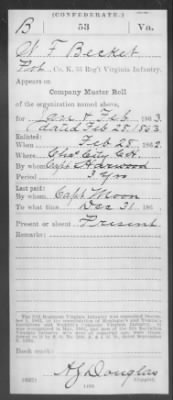 (CONFEDERATE.)
B 53 Va.
W F Becket
Pvt., Co. K, 53 Reg't Virginia Infantry.
Appears on
Company Muster Roll
of the organization named above,
for Jan & Feb, 1863.
dated Feb 28 1863
Enlisted:
When Feb 28, 1862.
Where Chas City C.H.
By whom Capt Harwood
Period 3 Yrs
Last paid:
By whom Capt Moon
To what time Dec 31, 186
Present or absent Present
Remarks:
Book mark:
A J Douglas
(642) Copyist.